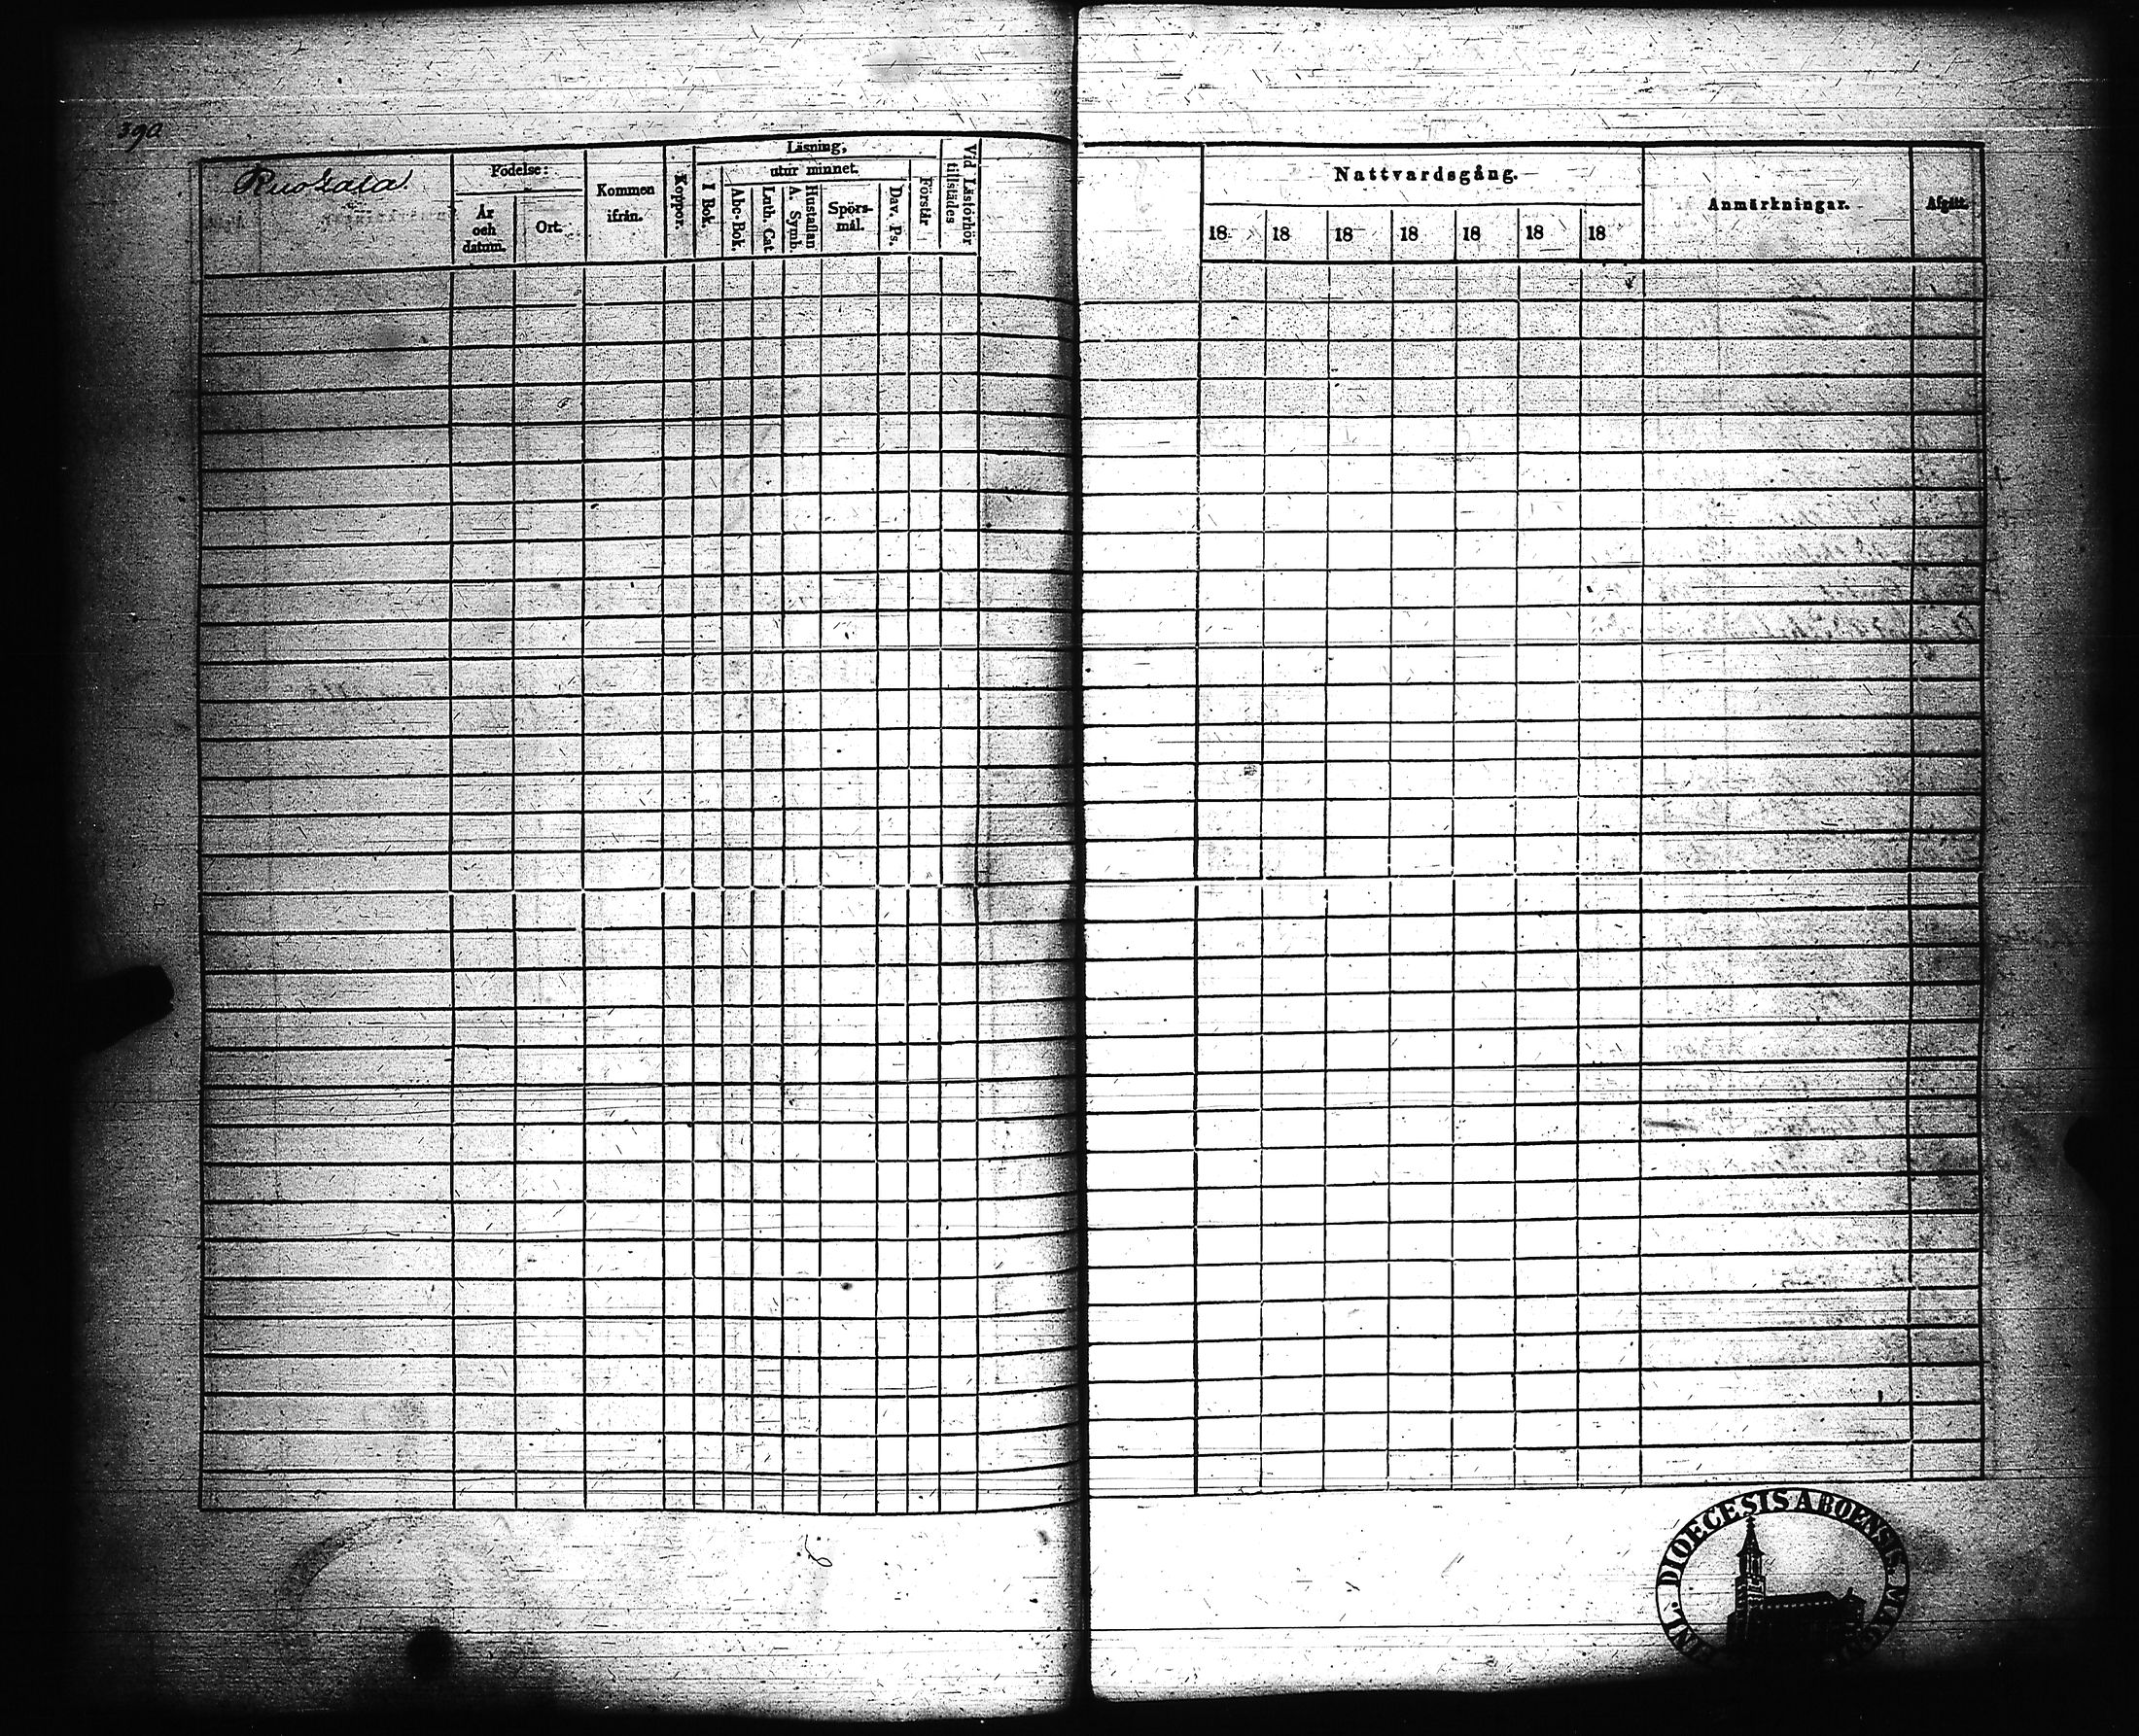 390
Födelse:
År och datum.
Ort.
Kommen ifrån.
Koppor.
Läsning,
I Bok.
utur minnet.
Abc-Bok.
Luth. Cat
A. Symb.
Hustaflan
Spörsmål.
Dav. Ps.
Förstår
Vid Läsförhör tillstädes
Nattvardsgång.
18 18 18 18 18 18 18
Anmärkningar.
Afgått.
DIOECESIS ABOENSIS